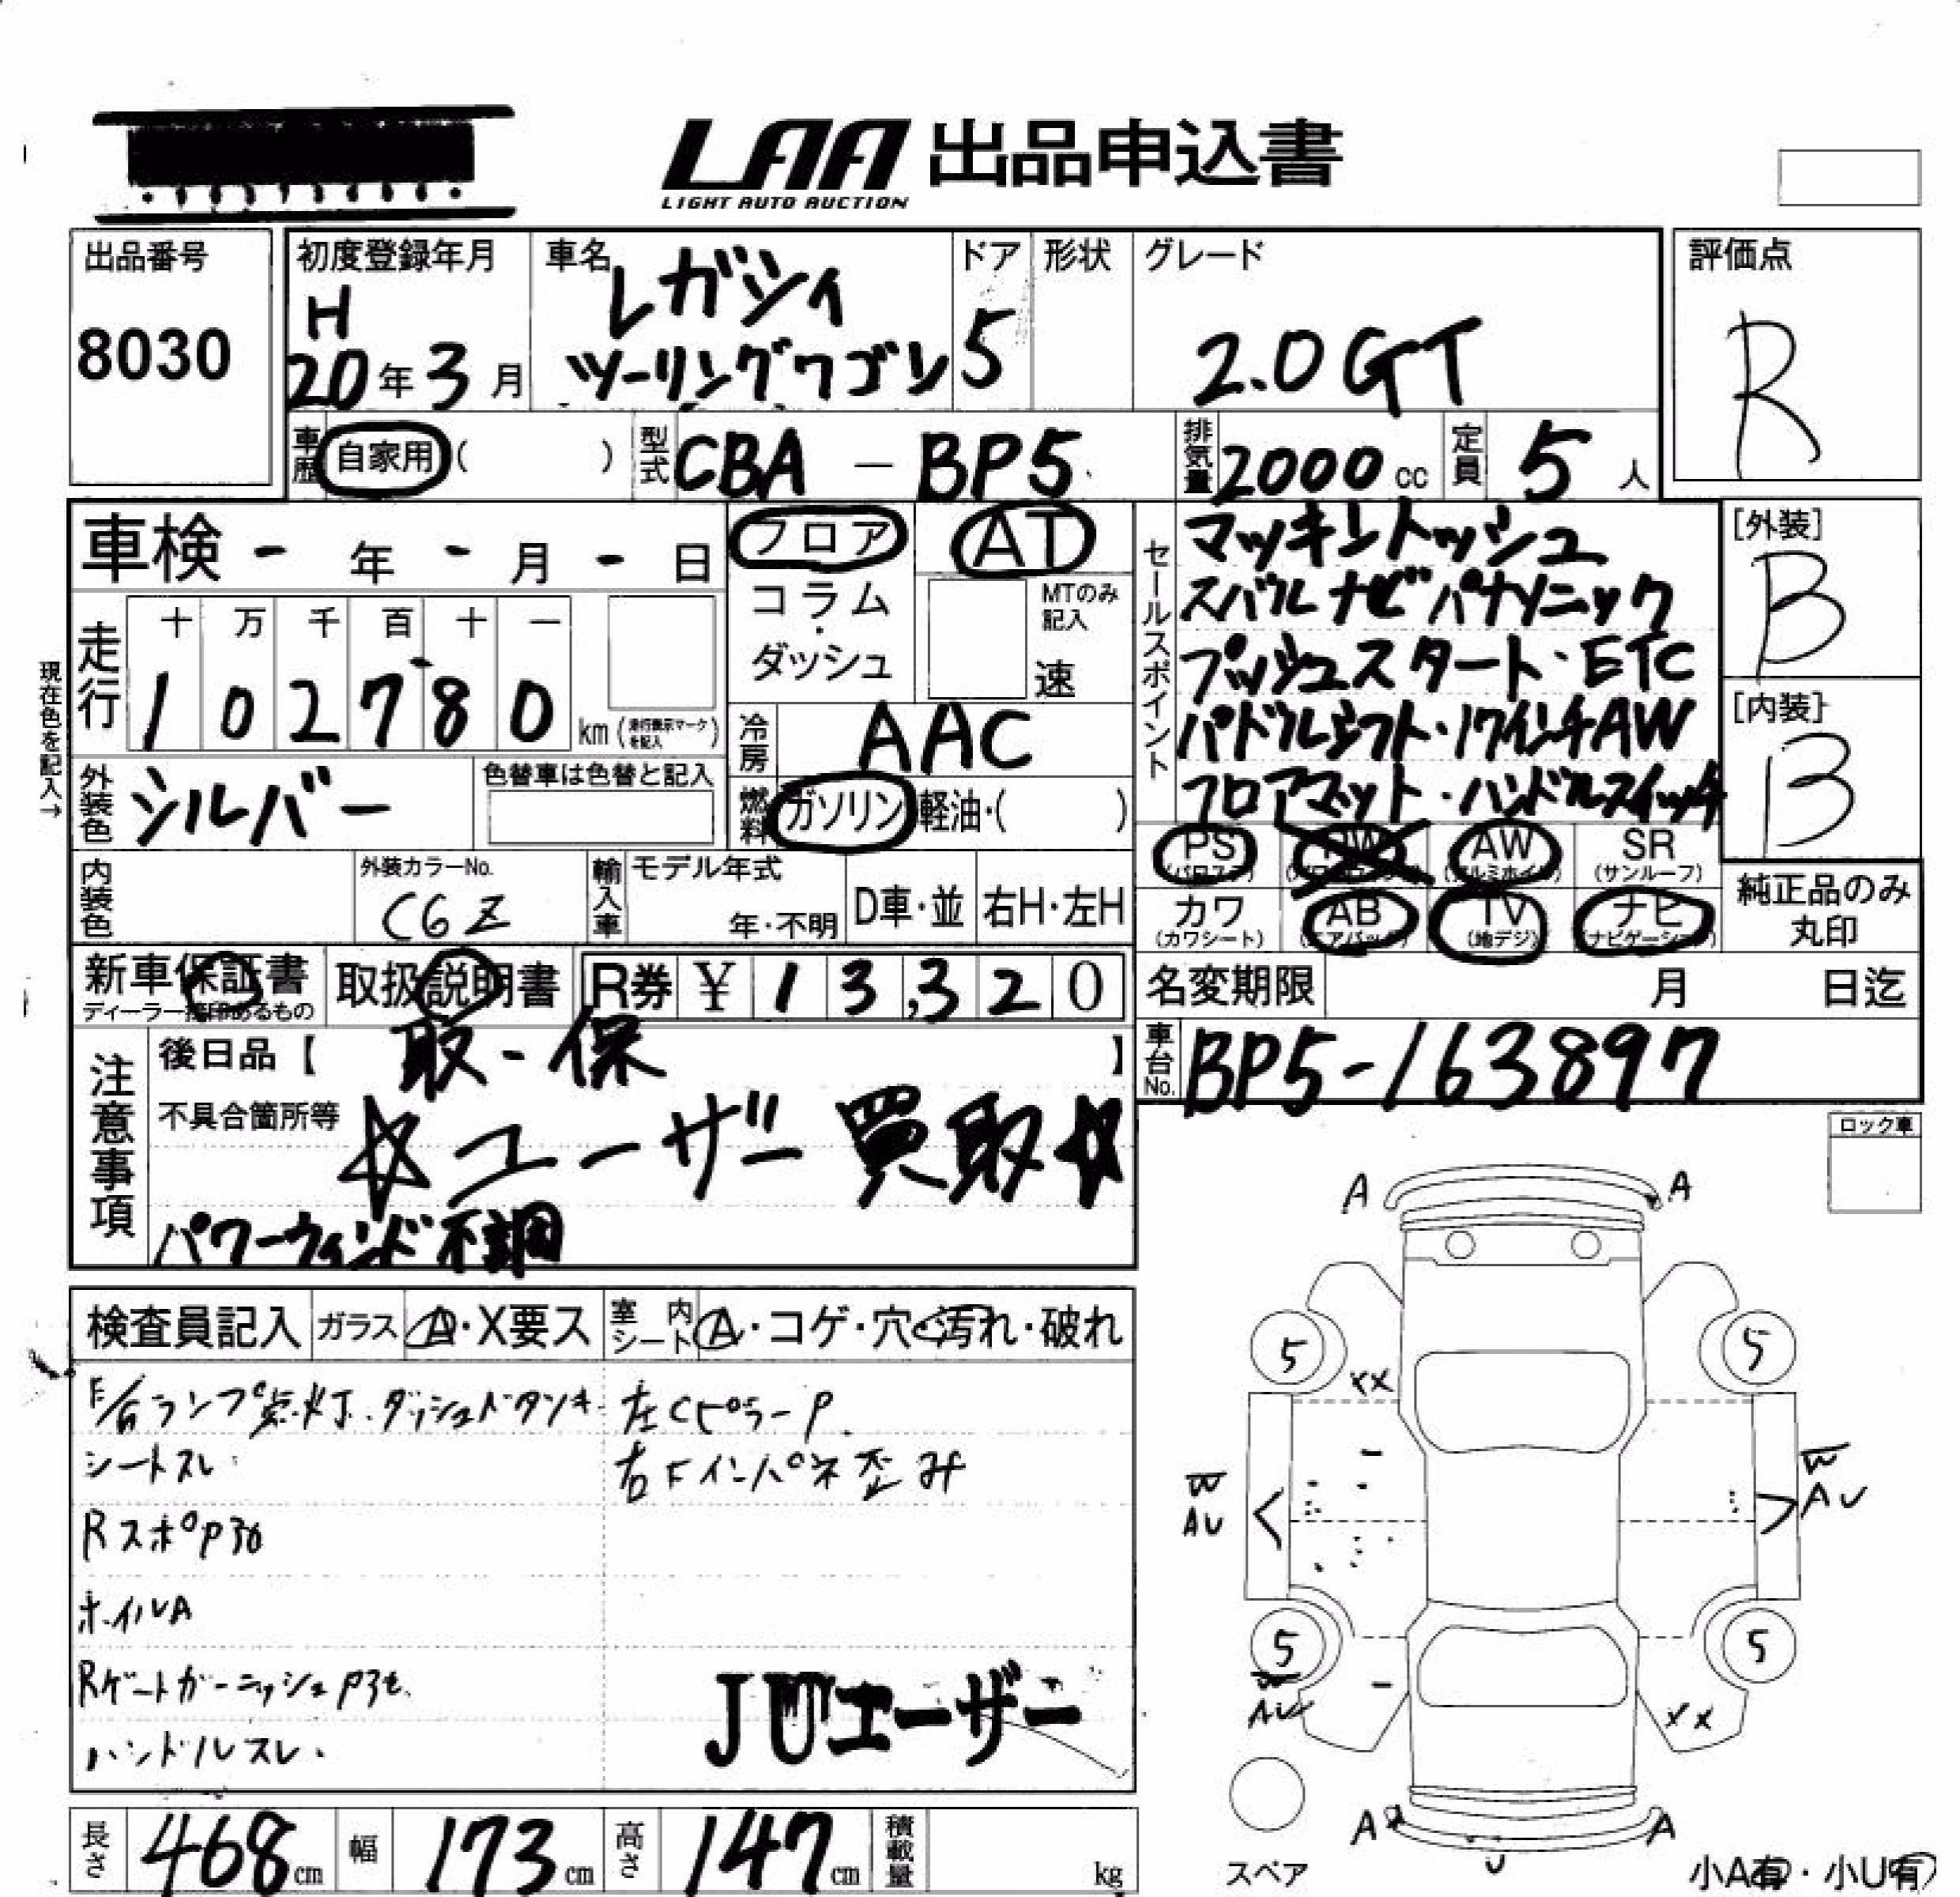 LAA 出品申込書
LIGHT AUTO AUCTION
出品番号
8030
初度登録年月
H
20年3月
車名
レガシィ
ツーリングワゴン
ドア
5
形状
グレード
2.0GT
評価点
R
車歴 自家用( )
型式 CBA-BP5
排気量 2000cc
定員 5人
車検 - 年 - 月 - 日
フロア
コラム・
ダッシュ
AT
MTのみ
記入
速
セールスポイント
マッキントッシュ
スバルナビパナソニック
プッシュスタート・ETC
パドルシフト・17インチAW
フロアマット・ハンドルスイッチ
[外装]
B
[内装]
B
現在色を記入→
走行
十 万 千 百 十 一
1 0 2 7 8 0
km(走行表示マークを記入)
冷房 AAC
燃料 ガソリン・軽油・( )
外装色 シルバー
色替車は色替と記入
PS (パワステ)
AW (アルミホイル)
SR (サンルーフ)
カワ (カワシート)
AB (エアバッグ)
TV (地デジ)
ナビ (ナビゲーション)
純正品のみ
丸印
内装色
外装カラーNo.
C6Z
輸入車
モデル年式
年・不明
D車・並
右H・左H
新車保証書
ディーラー捺印あるもの
取扱説明書
R券 ¥13,320
名変期限 月 日迄
車台No.
BP5-163897
注意事項
後日品【 取-保 】
不具合箇所等
☆ユーザー買取☆
パワーウィンド不調
ロック車
検査員記入
ガラス A・X要ス
室内シート A・コゲ・穴・汚れ・破れ
ランプ点灯.ダッシュドタンキ
シートスレ
Rスポ
ホイルA
Rゲートガーニッシュ
ハンドルスレ.
左CピラーP.
右Fインパネ歪み
JUユーザー
A A
5 5
XX
W
AU
W
AU
5 5
W
AU
XX
A A
U
スペア
小A有・小U有
長さ 468cm
幅 173cm
高さ 147cm
積載量 kg